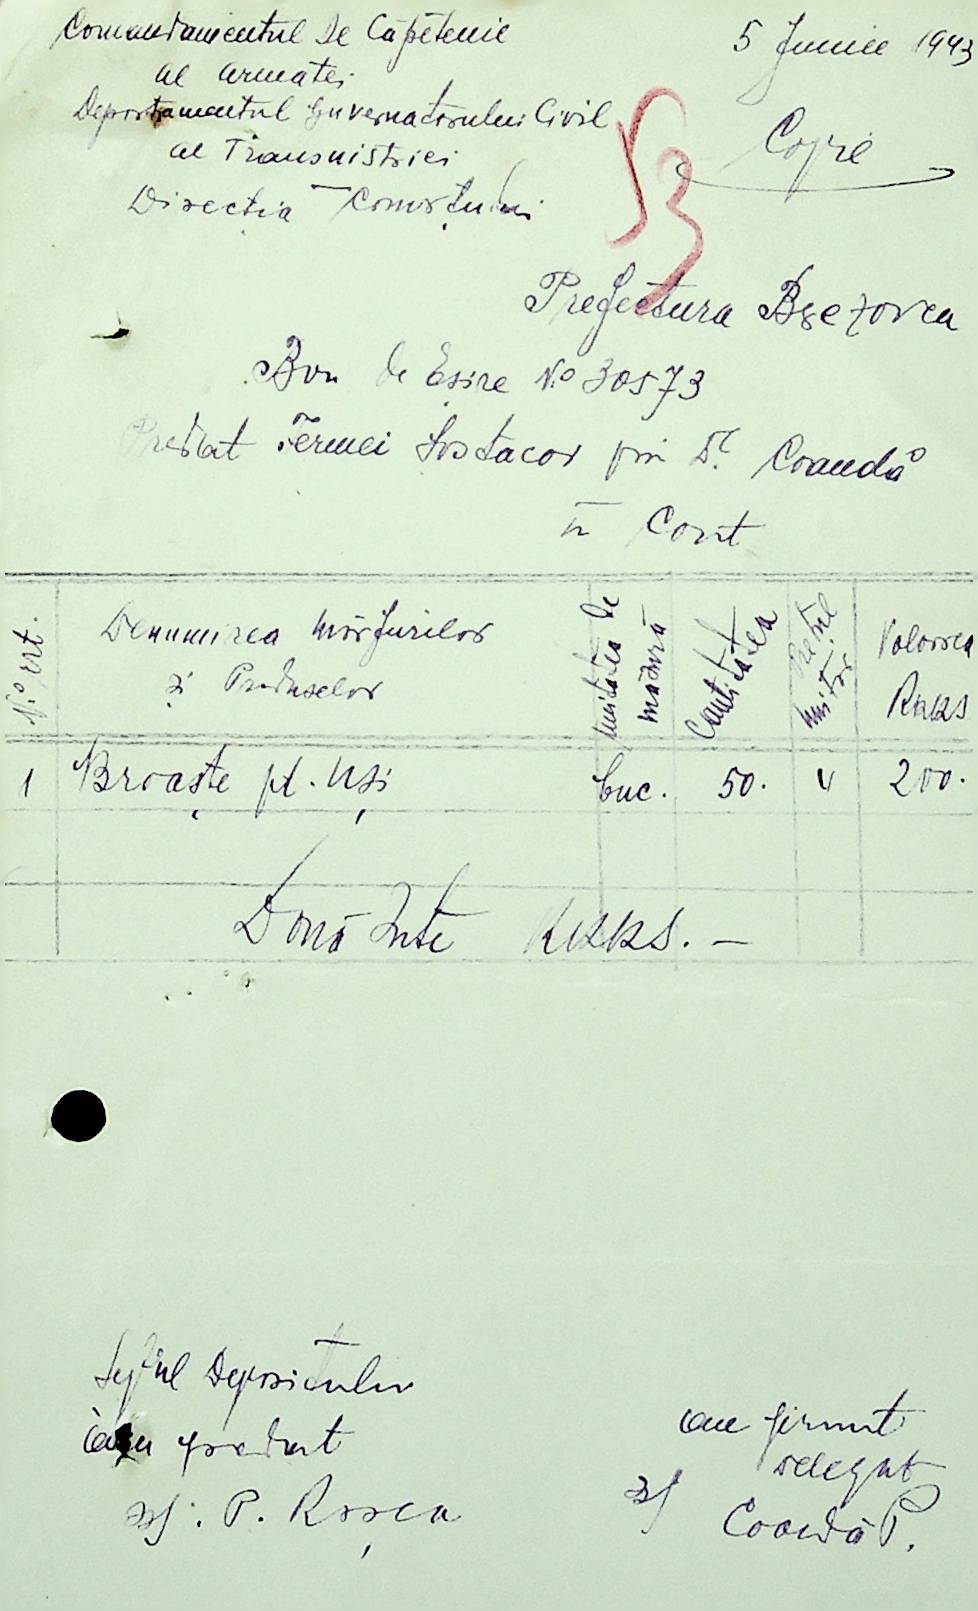 Comandamentul de Căpetenie
al armatei
Departamentul Guvernatorului Civil
al Transnistriei
Direcția Comerțului
5 Iunie 1943
53
Copie
Prefectura Berezovca
Bon de Eșire No 30573
Predat Fermei Sostacov prin Dl. Coandă
în Cont
No crt.
Denumirea mărfurilor
și Produselor
Unitatea de
măsură
Cantitatea
Prețul
unitar
Valoarea
RKKS
1 Broaște pt. Uși buc. 50. 4 200.
Două Sute RKKS. —
Șeful Depozitului
am predat
ss/. P. Roșca
am primit
delegat
ss/ Coandă P.